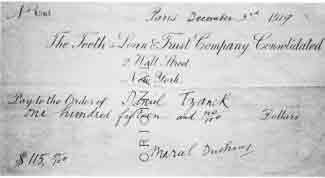 No
Paris December 3rd 1919
The Teeth's Loan & Trust Company Consolidated
2 Wall Street
New York
Pay to the Order of Daniel Tzanck
one hundred fifteen and no/100 Dollars
ORIGINAL
$ 115. no/100 Marcel Duchamp